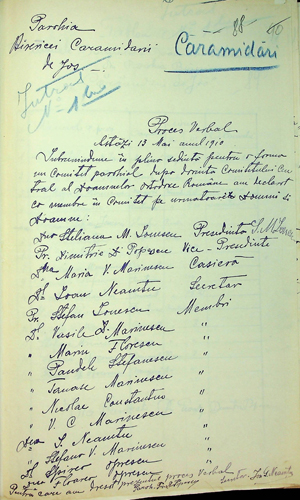 Parohia
88
Bisericei Caramidarii
Caramidari
de Jos
Intrat
N-1
Proces Verbal
Astăzi 13 Mai anul 1910
Intrunindune in plină sedință pentru a forma
un Comitet parohial după dorința Comitetului Cen
tral al Doamnelor ortodoxe Române am declarat
ca membre in Comitet pe urmatoarele Domni si
Doamne:
Steliana M. Ionescu Presidenta
Pr. Dimitrie D. Popescu Vice-Presidente
Maria V. Marinescu Casieră
Dl Ioan Neanțu Secretar
Pr. Stefan Ionescu Membri
D. Vasile D. Marinescu "
" Marin Florescu "
" Pandele Stefanescu "
" Tanase Marinescu "
" Nicolae Constantin "
" V C Marinescu "
S. Neanțu "
" Stefan V. Marinescu "
Spizer Oprescu "
Floarea Oprescu "
Pentru care am dresat presentul proces Verbal